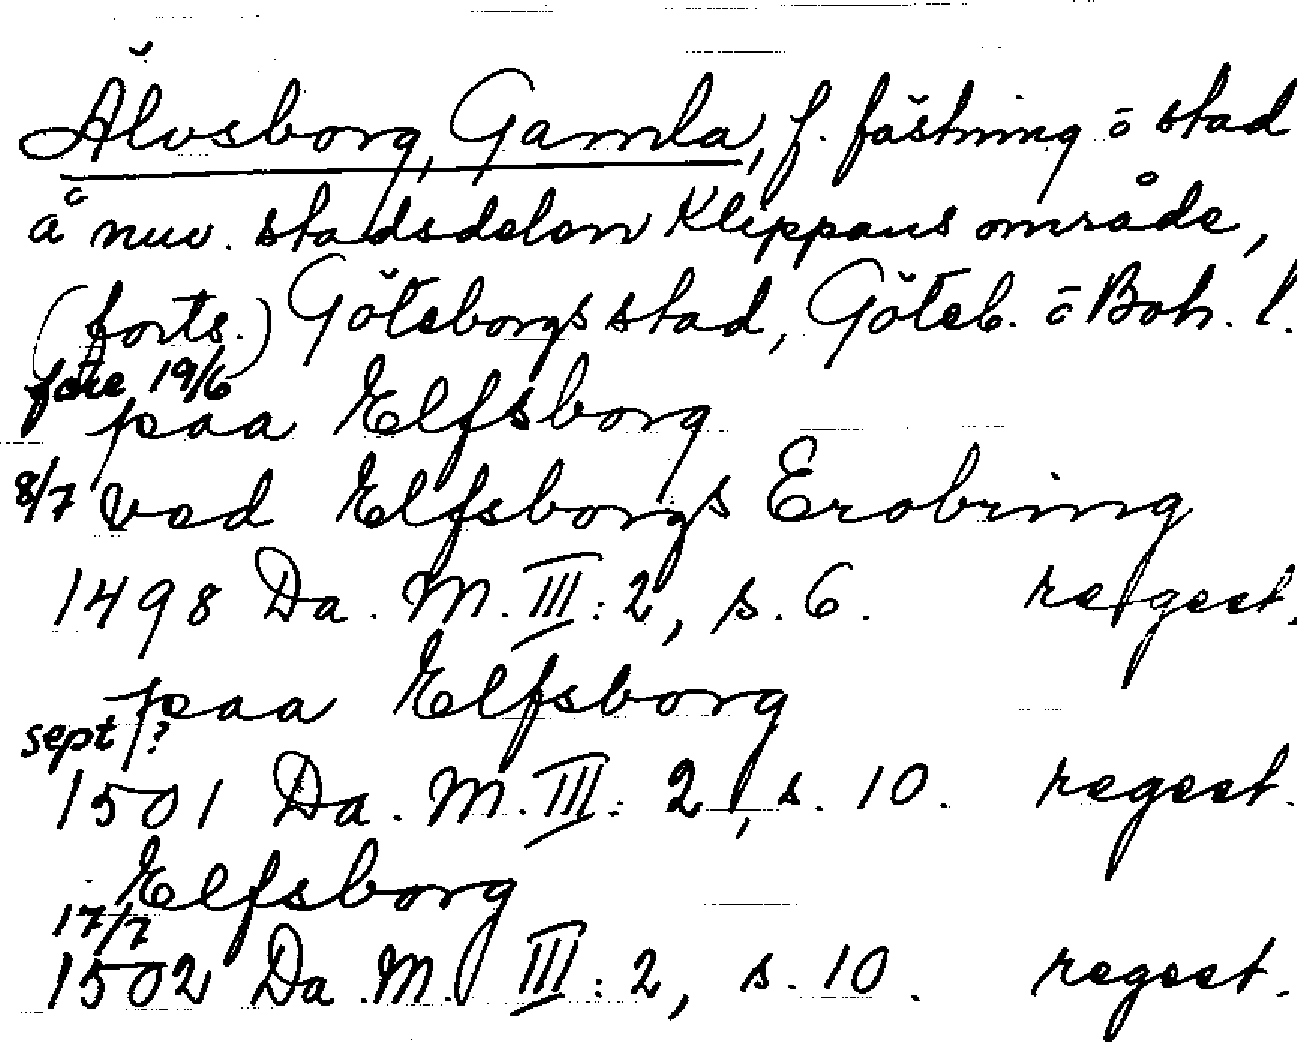 Älvsborg, Gamla, f. fästning o stad
å nuv. stadsdelen Klippans område,
(forts.) Göteborgs stad, Göteb. o Boh. l.
före 19/6
paa Elfsborg
8/7 ved Elfsborgs Erobring
1498 Da. M. III: 2, s. 6. regest.
paa Elfsborg
sept ?
1501 Da. M. III: 2, s. 10. regest.
Elfsborg
17/7
1502 Da. M. III: 2, s. 10. regest.